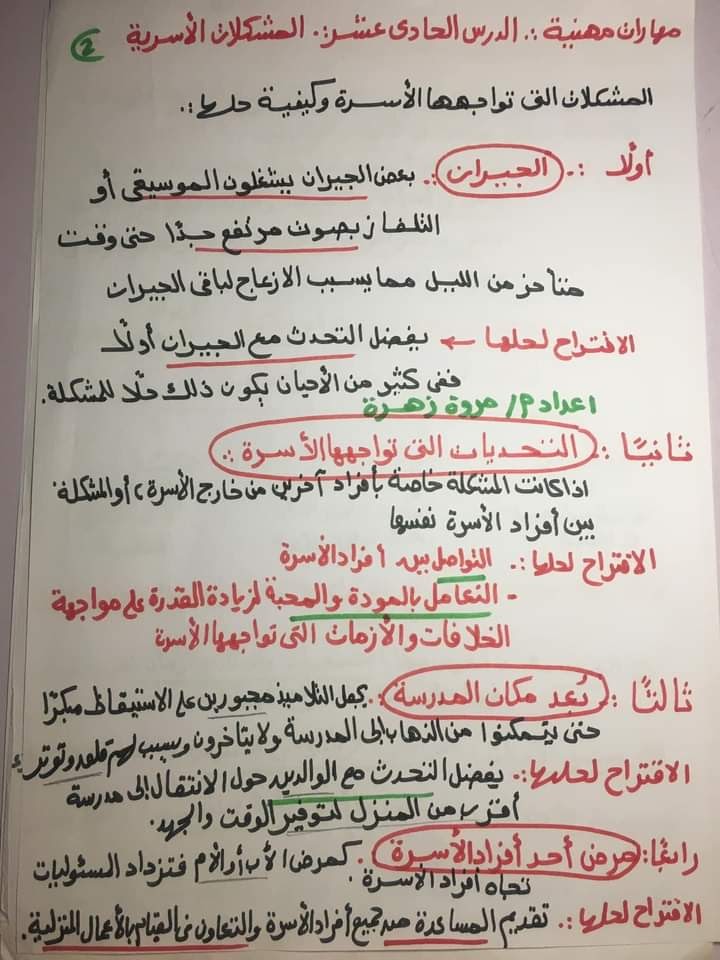 مهارات مهنية :. الدرس الحادى عشر :. المشكلات الأسرية 2
المشكلات التى تواجهها الأسرة وكيفية حلها :.
أولًا :. الجيران :. بعض الجيران يشغلون الموسيقى أو
التلفاز بصوت مرتفع جدًا حتى وقت
متأخر من الليل مما يسبب الازعاج لباقى الجيران
الاقتراح لحلها ← يفضل التحدث مع الجيران أولًا
ففى كثير من الأحيان يكون ذلك حلًا للمشكلة.
اعداد م/ مروة زهرة
ثانيًا :. التحديات التى تواجهها الأسرة :.
اذا كانت المشكلة خاصة بأفراد آخرين من خارج الأسرة، أو المشكلة
بين أفراد الأسرة نفسها
الاقتراح لحلها :. التواصل بين أفراد الأسرة
- التعامل بالمودة والمحبة لزيادة القدرة على مواجهة
الخلافات والأزمات التى تواجهها الأسرة
ثالثًا :. بُعد مكان المدرسة :. يجعل التلاميذ مجبورين على الاستيقاظ مبكرًا
حتى يتمكنوا من الذهاب إلى المدرسة ولا يتأخرون ويسبب لهم قلق وتوتر
الاقتراح لحلها :. يفضل التحدث مع الوالدين حول الانتقال إلى مدرسة
أقرب من المنزل لتوفير الوقت والجهد.
رابعًا : مرض أحد أفراد الأسرة :. كمرض الأب أو الأم فتزداد المسئوليات
تجاه أفراد الأسرة.
الاقتراح لحلها :. تقديم المساعدة من جميع أفراد الأسرة والتعاون فى القيام بالأعمال المنزلية.